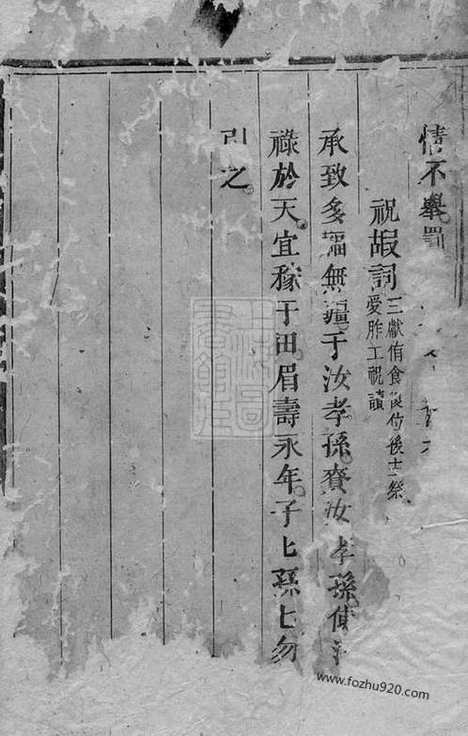 情不舉罰
祝嘏詞 三獻侑食復位後主祭
受胙工祝讀
承致多福無疆于汝孝孫賚汝孝孫使
祿於天宜稼于田眉壽永年子匕孫匕勿
引之
www.fozhu920.com